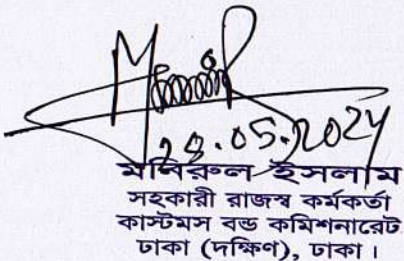 28.05.2024
মনিরুল ইসলাম
সহকারী রাজস্ব কর্মকর্তা
কাস্টমস বন্ড কমিশনারেট
ঢাকা (দক্ষিণ), ঢাকা।